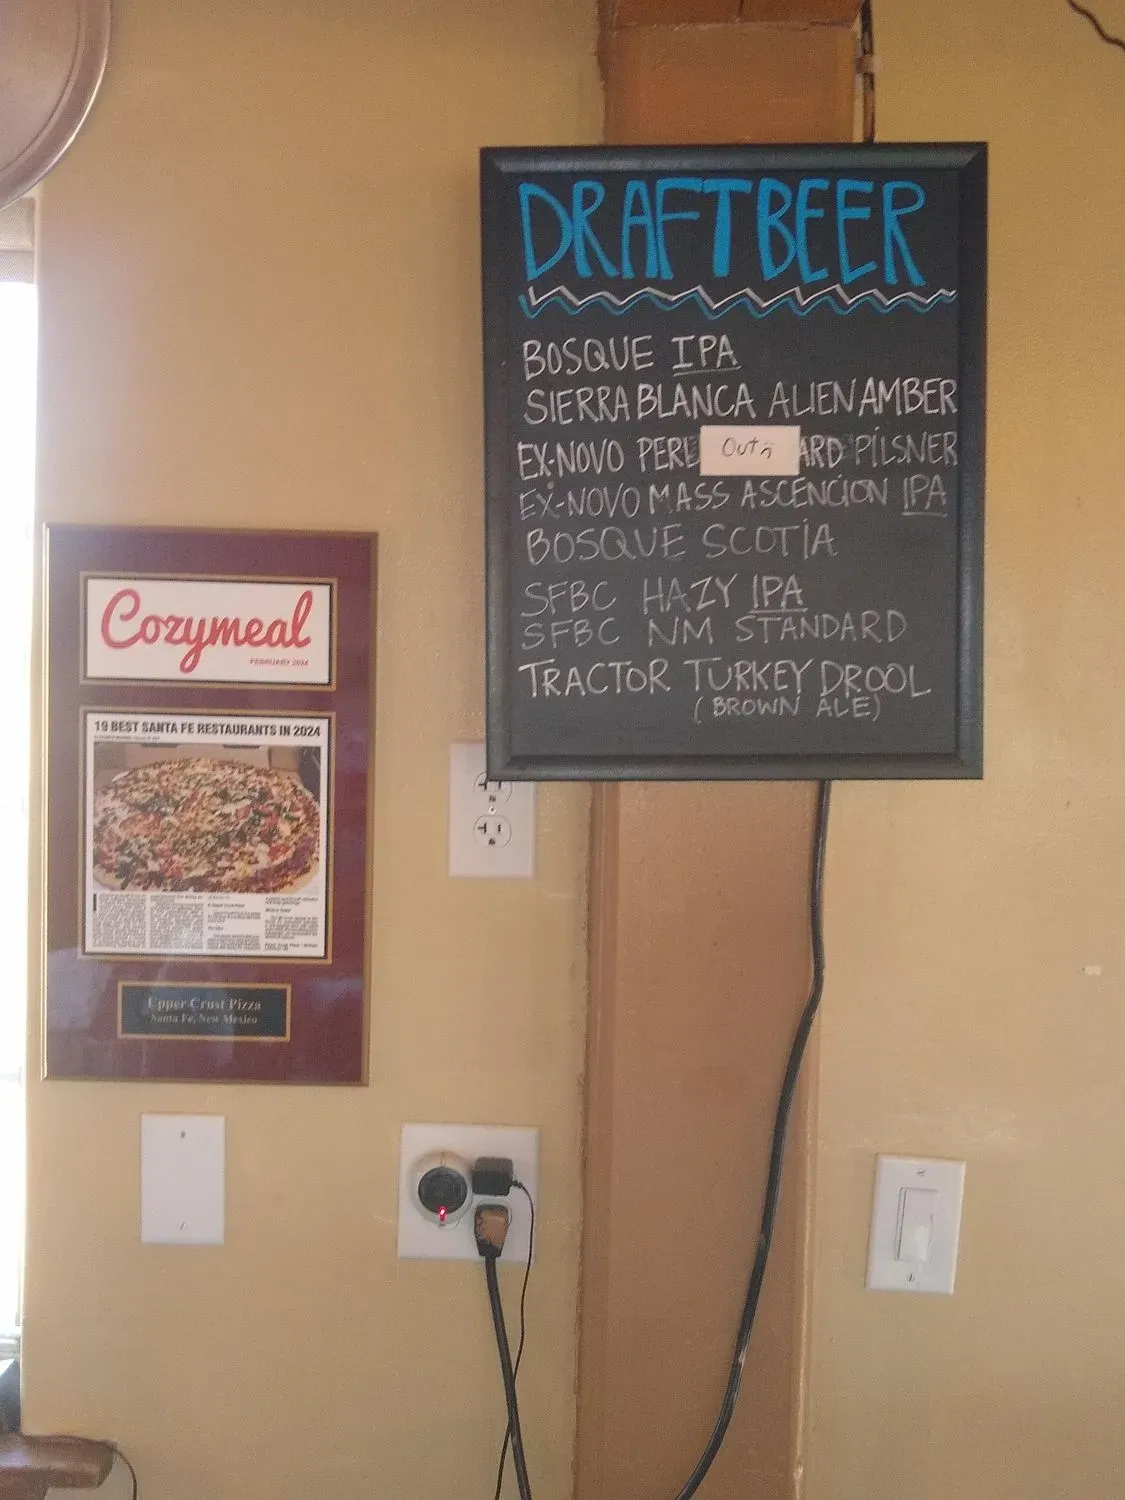 DRAFT BEER
BOSQUE IPA
SIERRA BLANCA ALIEN AMBER
EX-NOVO PERL Out :( ARD PILSNER
EX-NOVO MASS ASCENCION IPA
BOSQUE SCOTIA
SFBC HAZY IPA
SFBC NM STANDARD
TRACTOR TURKEY DROOL
(BROWN ALE)
Cozymeal
FEBRUARY 2024
19 BEST SANTA FE RESTAURANTS IN 2024
Upper Crust Pizza
Santa Fe, New Mexico